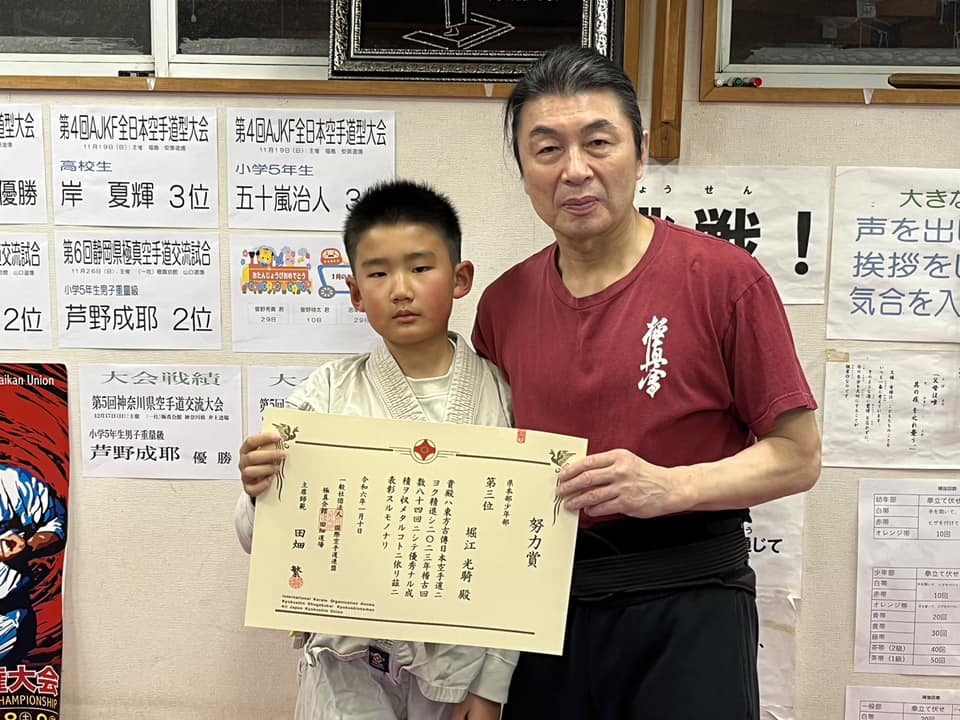 道型大会
優勝
第4回AJKF全日本空手道型大会
11月19日(日):主催 福島 安齊道場
高校生
岸 夏輝 3位
第4回AJKF全日本空手道型大会
小学5年生
五十嵐治人 3
道交流試合
2位
第6回静岡県極真空手道交流試合
11月26日(日):主催 (一社)極真会館 山口道場
小学5年生男子重量級
芦野成耶 2位
おたんじょうびおめでとう
1月の
29日
10日
29日
大会戦績
第5回神奈川県空手道交流大会
小学5年生男子重量級
芦野成耶 優勝
大会
aikan Union
権大会
CHAMPIONSHIP
ょうせん
挑戦!
大きな
声を出し
挨拶をし
気合を入
努力賞
県本部少年部
堀江 光騎 殿
第三位
貴殿ハ東方古傳日本空手道ニ
ヨク精進シ二〇二三年稽古回
数八十四回ニシテ優秀ナル成
績ヲ収メタルコトニ依リ茲ニ
表彰スルモノナリ
令和六年一月十日
一般社団法人 国際空手道連盟
極真会館 田畑道場
主席師範 田畑 繁
International Karate Organization Honbu
Kyokushin Shogakukai Kyokushinkaikan
All Japan Kyokushin Union
極真会
補強回数
幼年部 拳立て伏せ
白帯
赤帯
オレンジ帯 10回
少年部 拳立て伏せ
白帯
赤帯 10回
オレンジ帯
青帯 20回
黄帯 30回
緑帯
茶帯(2級) 40回
茶帯(1級) 50回
補強回数
一般部 拳立て伏せ
白帯 20回